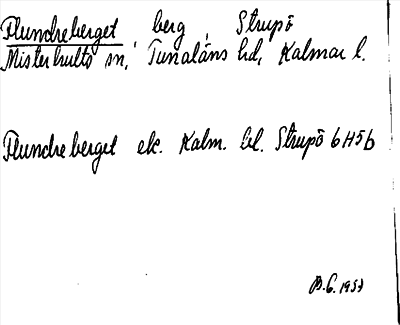 Flundreberget berg, Strupö
Misterhults sn, Tunaläns hd, Kalmar l.
Flundreberget ek. Kalm. bl. Strupö 6H5b
1957